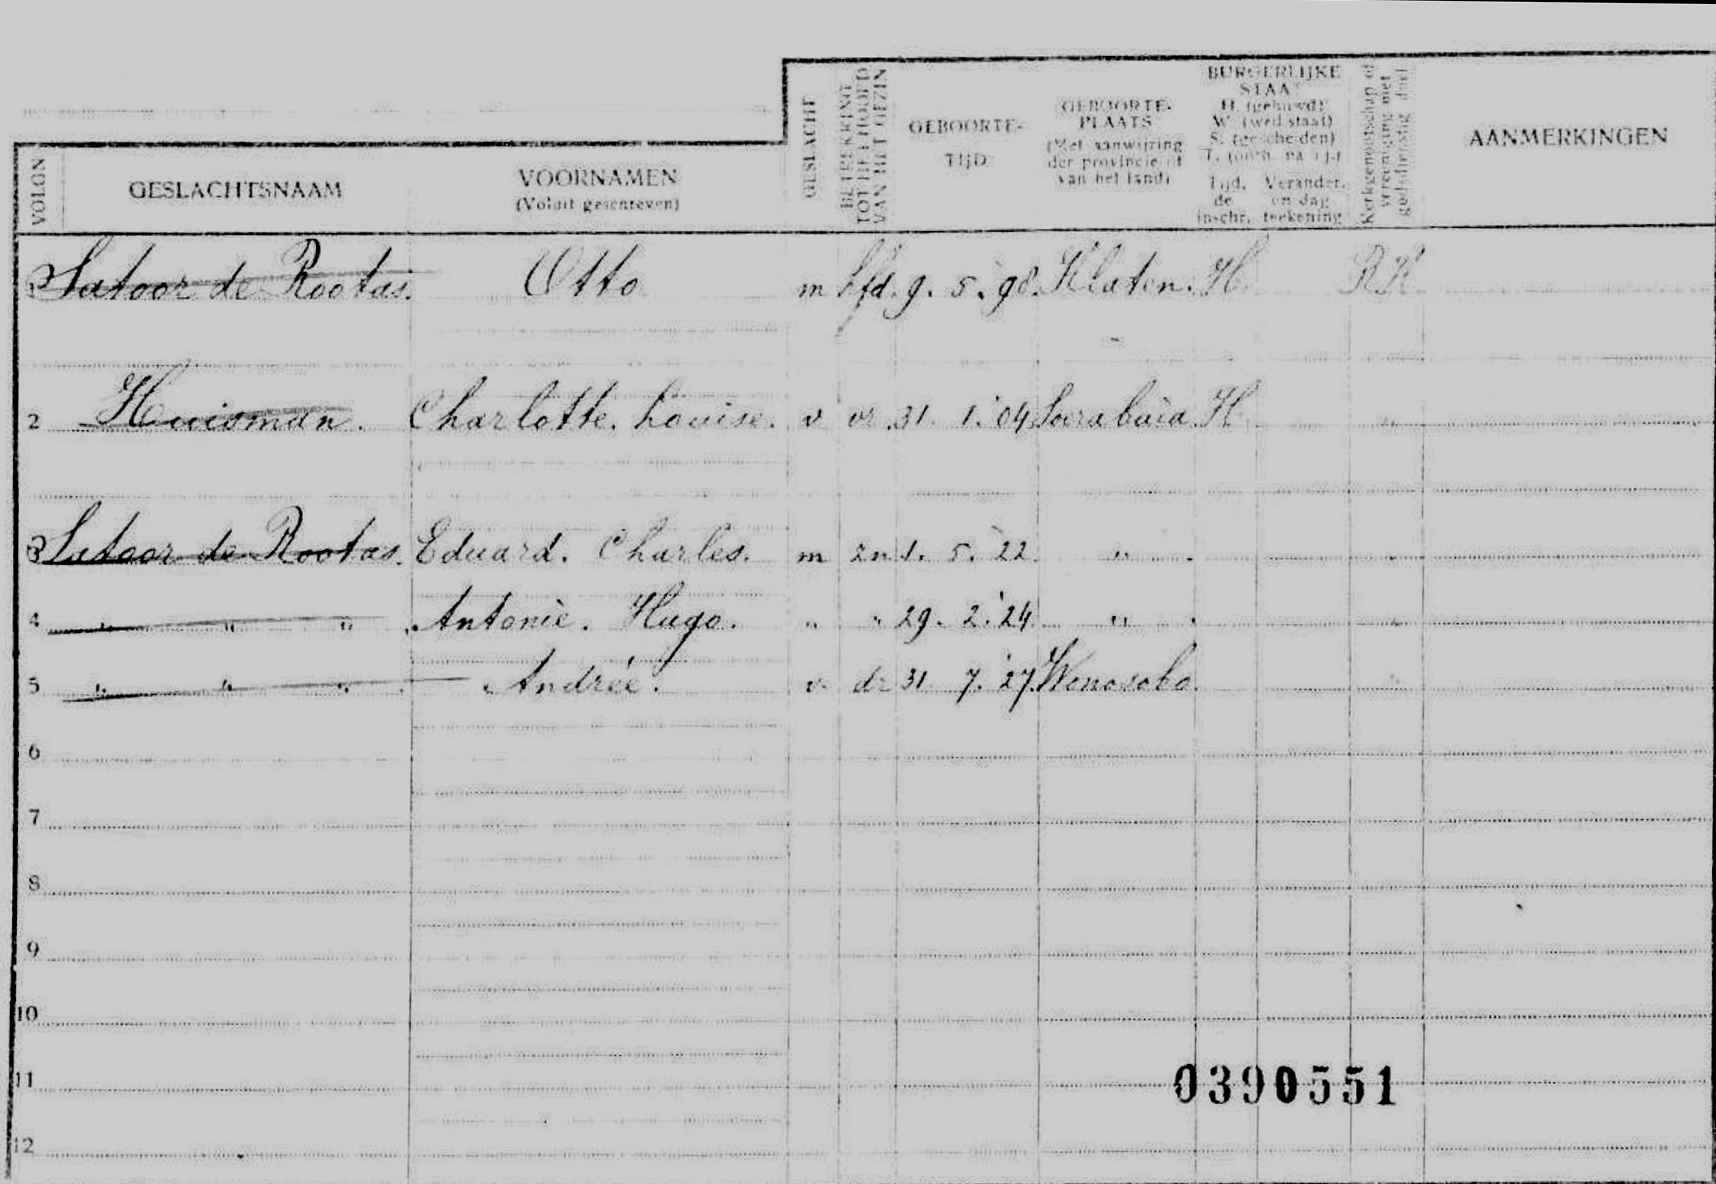 VOLGN
GESLACHTSNAAM
VOORNAMEN
(Voluit geschreven)
GESLACHT
BETREKKING TOT HET HOOFD VAN HET GEZIN
GEBOORTE-
TIJD
GEBOORTE-
PLAATS
(Met aanwijzing
der provincie of
van het land)
BURGERLIJKE
STAAT
H. (gehuwd)
W. (wed.staat)
S. (gescheiden)
Tijd. Verander.
de en dag
inschr. teekening
Kerkgenootschap of vereeniging met godsdienstig doel
AANMERKINGEN
1 Satoor de Rootas. Otto m hfd. 9. 5. '98. Klaten. H. R.K
2 Huisman. Charlotte. Louise. v vr. 31. 1. '04 Soerabaia H "
3 Satoor de Rootas. Eduard. Charles. m zn 1. 5. '22 " "
4 " " " Antonie. Hugo. " " 29. 2. '24 " "
5 " " " Andrée. v. dr 31 7. '27. Wonosobo "
6
7
8
9
10
11 0390551
12